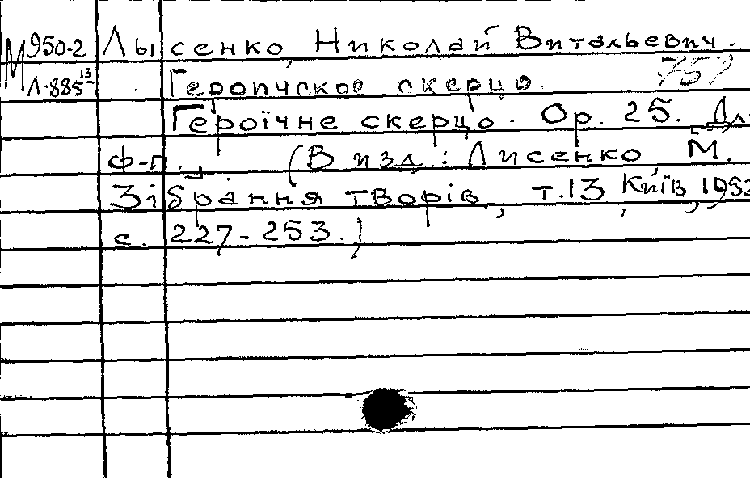 М 950-2 Лысенко, Николай Витальевич.
Л-885 13 Героическое скерцо.
Героічне скерцо. Ор. 25. Дл
ф-п. (В изд.: Лисенко, М.
Зібрання творів, т. 13, Київ, 1952
с. 227-253.)